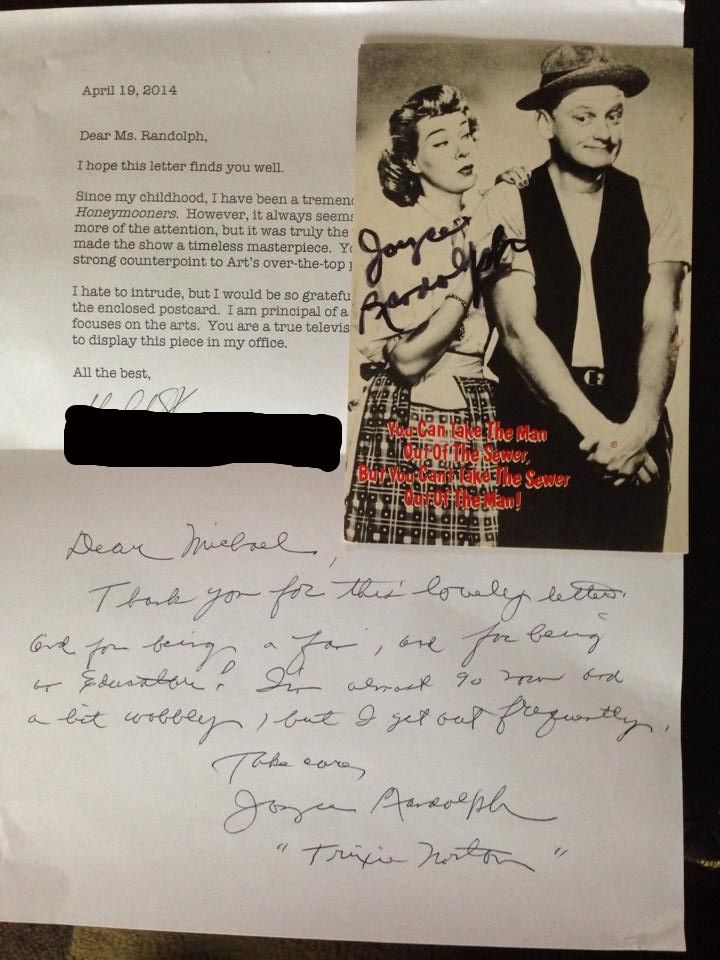 April 19, 2014
Dear Ms. Randolph,
I hope this letter finds you well.
Since my childhood, I have been a tremen
Honeymooners. However, it always seems
more of the attention, but it was truly the
made the show a timeless masterpiece. Yo
strong counterpoint to Art's over-the-top
I hate to intrude, but I would be so gratefu
the enclosed postcard. I am principal of a
focuses on the arts. You are a true televis
to display this piece in my office.
All the best,
Joyce
Randolph
You Can Take The Man
Out Of The Sewer,
But You Can't Take The Sewer
Out Of The Man!
Dear Michael,
Thank you for this lovely letter
and for being a fan, and for being
an Educator! I'm almost 90 now and
a bit wobbley, but I get out frequently.
Take care,
Joyce Randolph
"Trixie Norton"